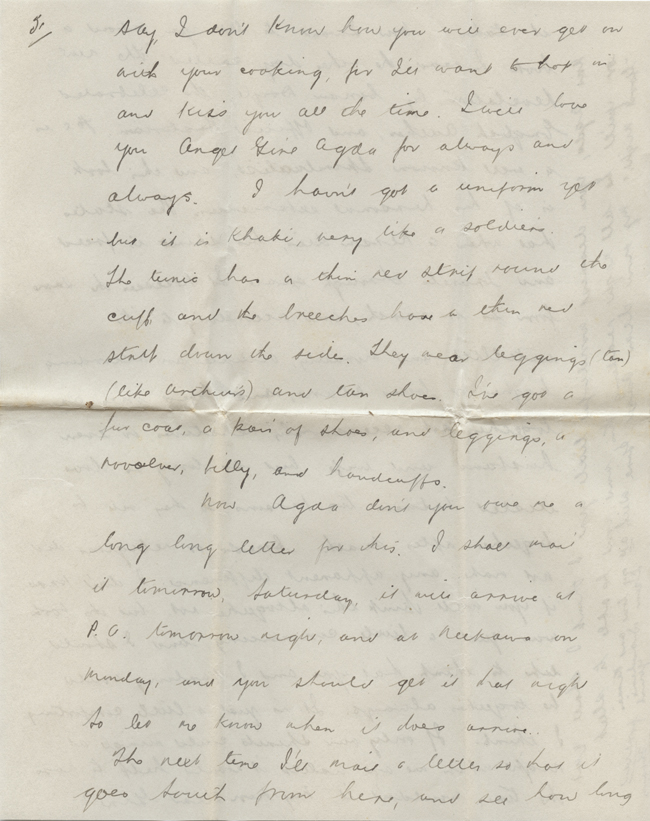 5/
say, I don't know how you will ever get on
with your cooking, for I'll want to hop in
and kiss you all the time. I will love
you Angel Girl Agda for always and
always. I havn't got a uniform yet
but it is Khaki, very like a soldiers.
The tunic has a thin red strip round the
cuff, and the breeches have a thin red
strip down the side. They wear leggings (tan)
(like Archie's) and tan shoes. I've got a
fur coat, a pair of shoes, and leggings, a
revolver, billy, and handcuffs.
Now Agda don't you owe me a
long long letter for this. I shall mail
it tomorrow, Saturday, it will arrive at
P.G. tomorrow night, and at on
Monday, and you should get it that night
so let me know when it does arrive.
The next time I'll mail a letter so that it
goes South from here, and see how long